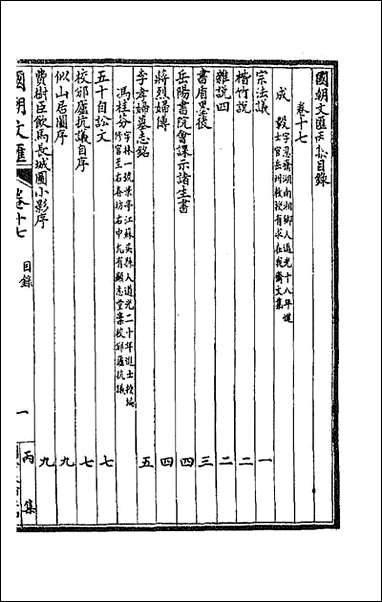 國朝文匯丙集目錄
卷十七
成毅 字忍齋湖南湘鄉人道光十八年進士官岳州教授有求在我齋文集
宗法議 一
楷竹說 二
雜說四 二
書盾墨後 三
岳陽書院會課示諸生書 四
蔣烈婦傳 四
李孝婦墓志銘 五
馮桂芬 字林一號景亭江蘇吳縣人道光二十年進士授編修官至右春坊右中允有顯志堂集校邠廬抗議
五十自訟文 七
校邠廬抗議自序 七
似山居圖序 九
費樹臣飲馬長城圖小影序 九
國朝文匯 卷十七 目錄 一 丙集